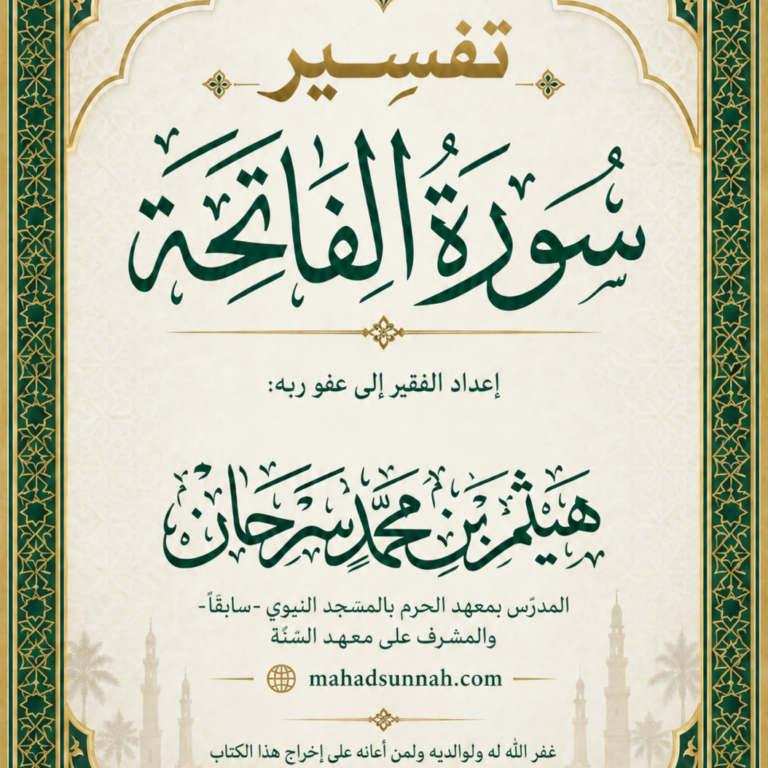 تفسير
سُورَةُ الفَاتِحَة
إعداد الفقير إلى عفو ربه:
هَيْثَم بْنِ مُحَمَّد سَرْحَان
المدرّس بمعهد الحرم بالمسَجد النيوي -سابقَاً-
والمشرف على معهد السّنَّة
mahadsunnah.com
غفر الله له ولوالديه ولمن أعانه على إخراج هذا الكتاب